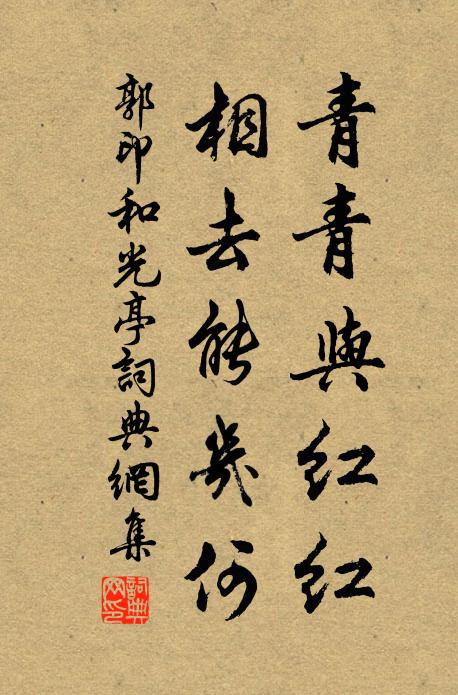 青青與紅紅
相去能幾何
郭印和光亭詞典網集
詞典
网印